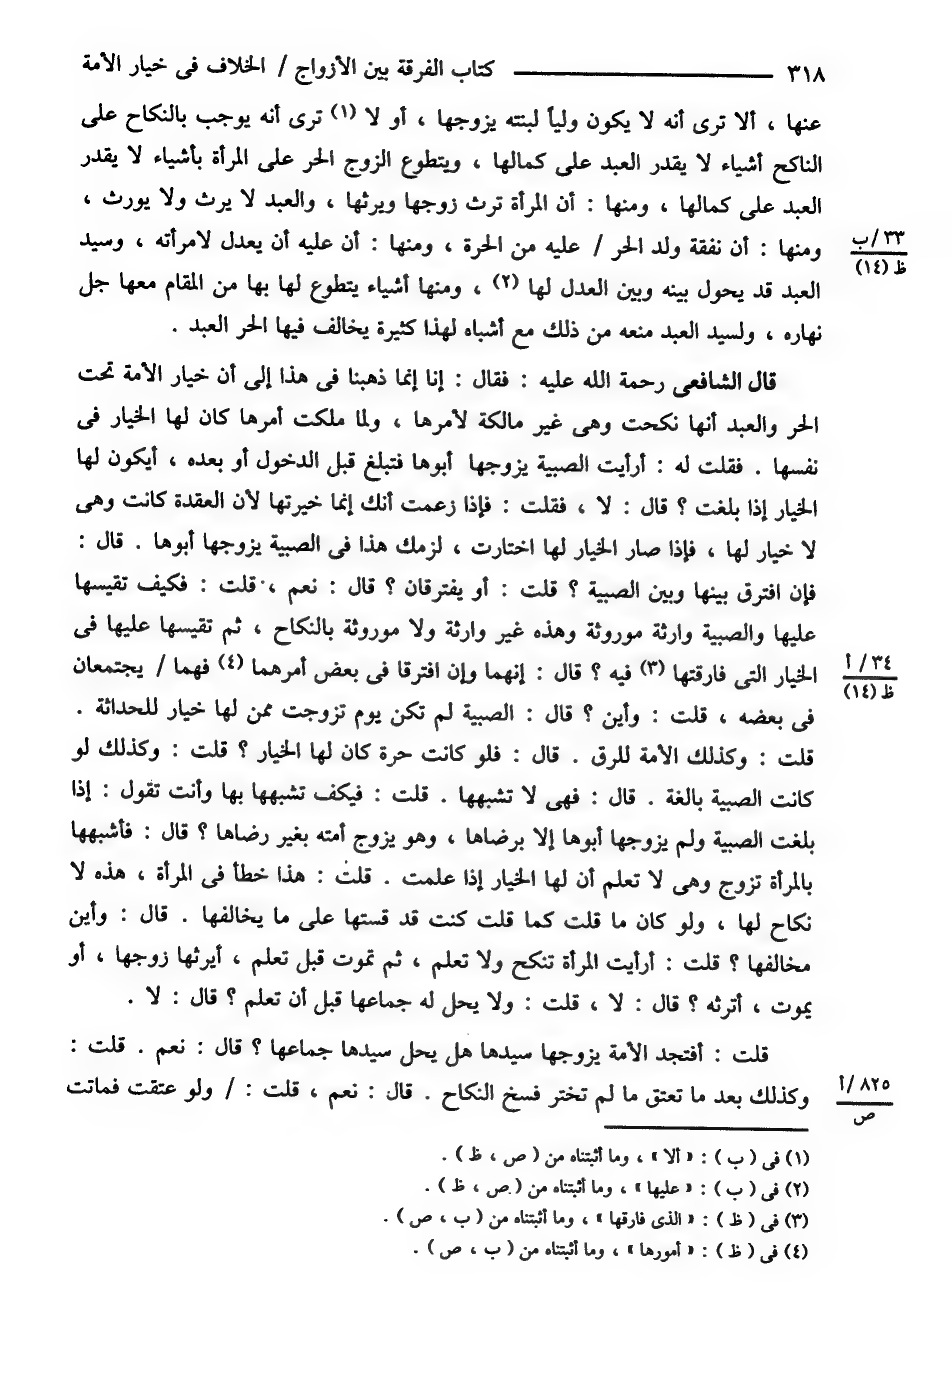 ٣١٨ ــــــــــــــــــ كتاب الفرقة بين الأزواج / الخلاف فى خيار الأمة
عنها ، ألا ترى أنه لا يكون ولياً لبنته يزوجها ، أو لا (١) ترى أنه يوجب بالنكاح على
الناكح أشياء لا يقدر العبد على كمالها ، ويتطوع الزوج الحر على المرأة بأشياء لا يقدر
العبد على كمالها ، ومنها : أن المرأة ترث زوجها ويرثها ، والعبد لا يرث ولا يورث ،
ومنها : أن نفقة ولد الحر / عليه من الحرة ، ومنها : أن عليه أن يعدل لامرأته ، وسيد
٣٣/ب
ظ (١٤)
العبد قد يحول بينه وبين العدل لها (٢) ، ومنها أشياء يتطوع لها بها من المقام معها جل
نهاره ، ولسيد العبد منعه من ذلك مع أشباه لهذا كثيرة يخالف فيها الحر العبد .
قال الشافعى رحمة الله عليه : فقال : إنا إنما ذهبنا فى هذا إلى أن خيار الأمة تحت
الحر والعبد أنها نكحت وهى غير مالكة لأمرها ، ولما ملكت أمرها كان لها الخيار فى
نفسها . فقلت له : أرأيت الصبية يزوجها أبوها فتبلغ قبل الدخول أو بعده ، أيكون لها
الخيار إذا بلغت ؟ قال : لا ، فقلت : فإذا زعمت أنك إنما خيرتها لأن العقدة كانت وهى
لا خيار لها ، فإذا صار الخيار لها اختارت ، لزمك هذا فى الصبية يزوجها أبوها . قال :
فإن افترق بينها وبين الصبية ؟ قلت : أو يفترقان ؟ قال : نعم ، قلت : فكيف تقيسها
عليها والصبية وارثة موروثة وهذه غير وارثة ولا موروثة بالنكاح ، ثم تقيسها عليها فى
الخيار التى فارقتها (٣) فيه ؟ قال : إنهما وإن افترقا فى بعض أمرهما (٤) فهما / يجتمعان
٣٤ / أ
ظ (١٤)
فى بعضه ، قلت : وأين ؟ قال : الصبية لم تكن يوم تزوجت ممن لها خيار للحداثة .
قلت : وكذلك الأمة للرق . قال : فلو كانت حرة كان لها الخيار ؟ قلت : وكذلك لو
كانت الصبية بالغة . قال : فهى لا تشبهها . قلت : فيكف تشبهها بها وأنت تقول : إذا
بلغت الصبية ولم يزوجها أبوها إلا برضاها ، وهو يزوج أمته بغير رضاها ؟ قال : فأشبهها
بالمرأة تزوج وهى لا تعلم أن لها الخيار إذا علمت . قلت : هذا خطأ فى المرأة ، هذه لا
نكاح لها ، ولو كان ما قلت كما قلت كنت قد قستها على ما يخالفها . قال : وأين
مخالفها ؟ قلت : أرأيت المرأة تنكح ولا تعلم ، ثم تموت قبل تعلم ، أيرثها زوجها ، أو
يموت ، أترثه ؟ قال : لا ، قلت : ولا يحل له جماعها قبل أن تعلم ؟ قال : لا .
قلت : أفتجد الأمة يزوجها سيدها هل يحل سيدها جماعها ؟ قال : نعم . قلت :
وكذلك بعد ما تعتق ما لم تختر فسخ النكاح . قال : نعم ، قلت : / ولو عتقت فماتت
٨٢٥ /أ
ص
(١) فى ( ب ) : « ألا » ، وما أثبتناه من ( ص ، ظ ) .
(٢) فى ( ب ) : « عليها » ، وما أثبتناه من ( ص ، ظ ) .
(٣) فى ( ظ ) : « الذى فارقها » ، وما أثبتناه من ( ب ، ص ) .
(٤) فى ( ظ ) : « أمورها » ، وما أثبتناه من ( ب ، ص ) .